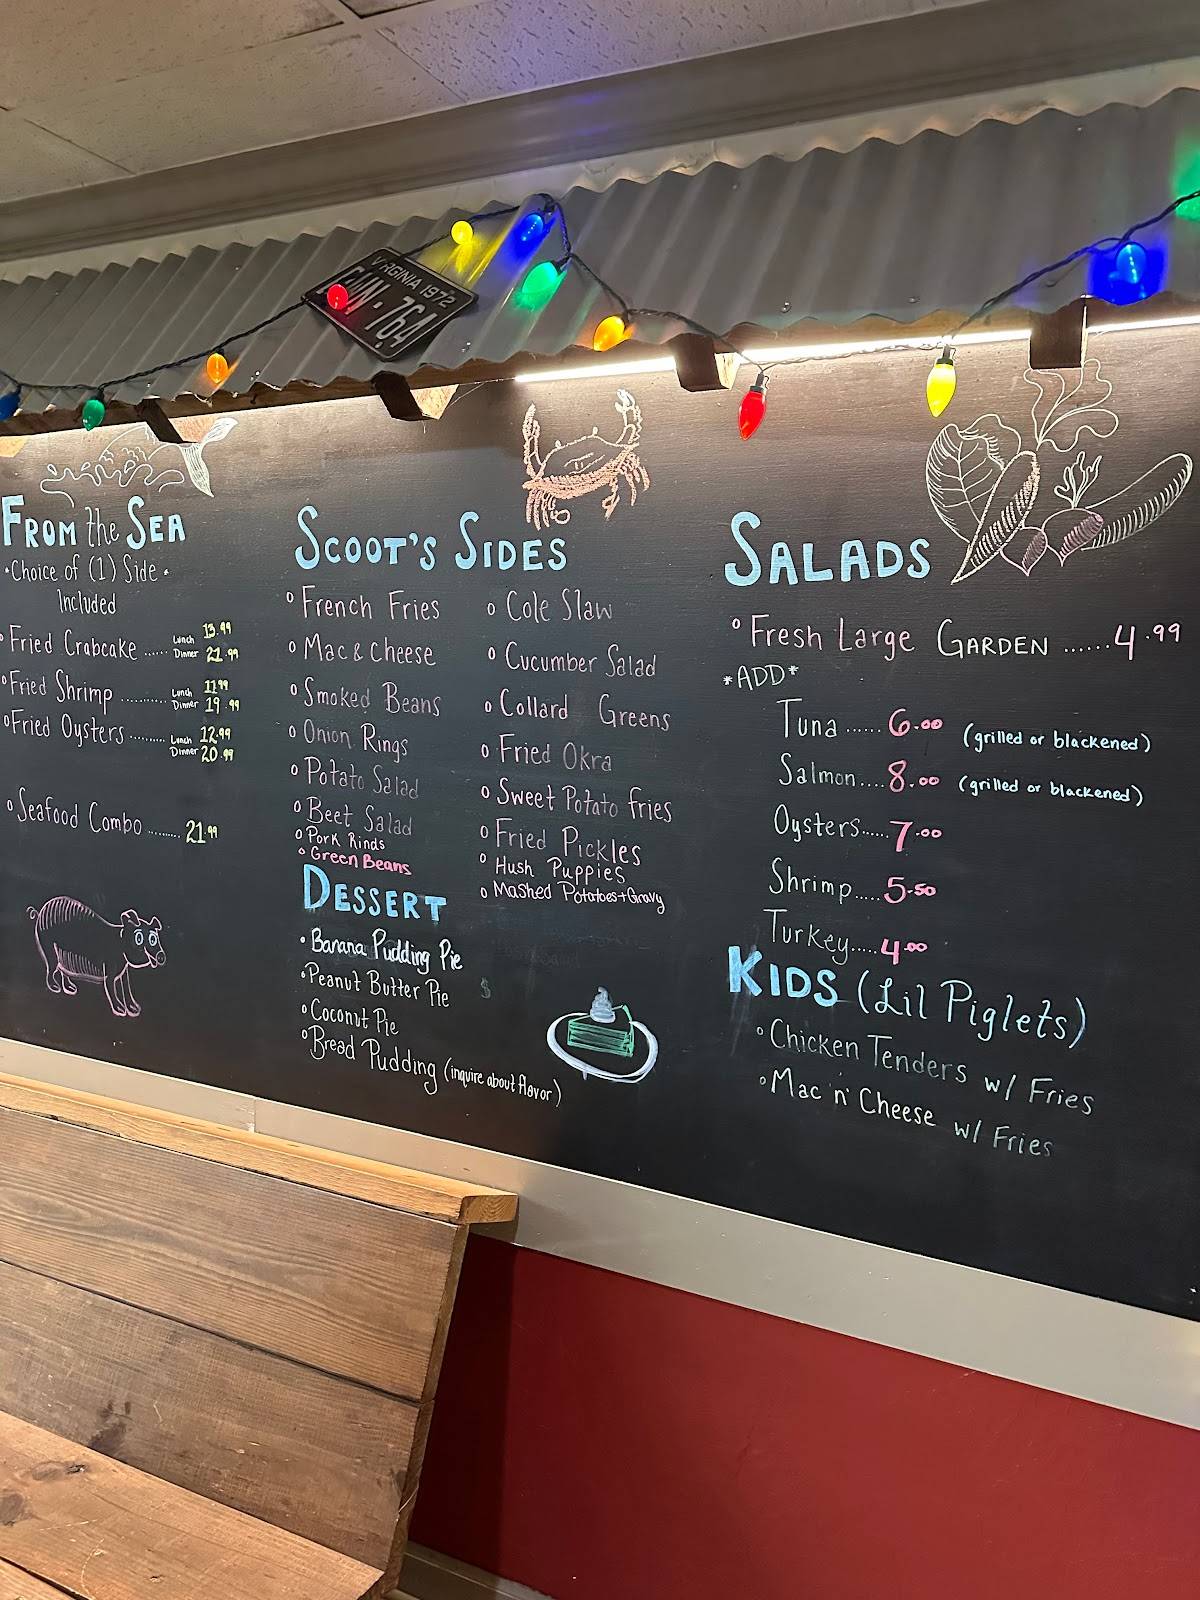 VIRGINIA 1972
764
FROM the SEA
•Choice of (1) Side•
Included
Fried Crabcake ...... Lunch 13.99
Dinner 21.99
Fried Shrimp ............ Lunch 11.99
Dinner 19.99
Fried Oysters .......... Lunch 12.99
Dinner 20.99
Seafood Combo ......... 21.99
SCOOT'S SIDES
French Fries
Mac & Cheese
Smoked Beans
Onion Rings
Potato Salad
Beet Salad
Pork Rinds
Green Beans
Cole Slaw
Cucumber Salad
Collard Greens
Fried Okra
Sweet Potato fries
Fried Pickles
Hush Puppies
Mashed Potatoes+Gravy
DESSERT
• Banana Pudding Pie
• Peanut Butter Pie $
• Coconut Pie
• Bread Pudding (inquire about flavor)
SALADS
Fresh Large GARDEN ......4.99
*ADD*
Tuna ...... 6.00 (grilled or blackened)
Salmon.... 8.00 (grilled or blackened)
Oysters...... 7.00
Shrimp..... 5.50
Turkey..... 4.00
KIDS (Lil Piglets)
Chicken Tenders w/ Fries
Mac 'n' Cheese w/ Fries